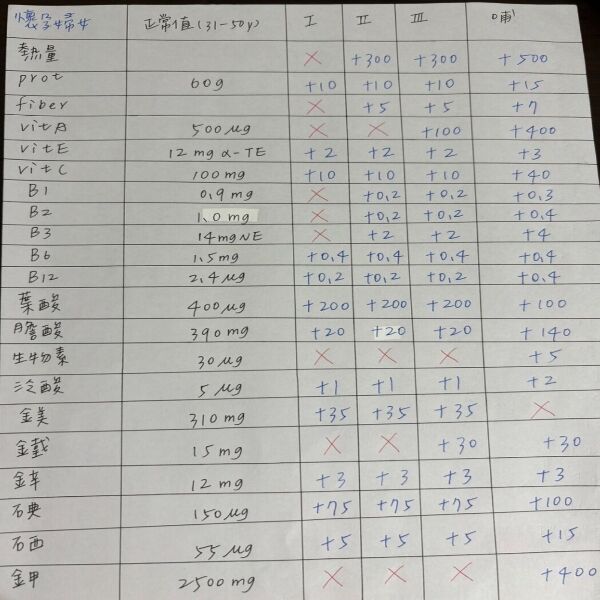 懷孕婦女 正常值(31-50y) I II III 哺
熱量 × +300 +300 +500
prot 60g +10 +10 +10 +15
fiber × +5 +5 +7
vitA 500μg × × +100 +400
vitE 12 mg α-TE +2 +2 +2 +3
vitC 100 mg +10 +10 +10 +40
B1 0.9mg × +0.2 +0.2 +0.3
B2 1.0 mg × +0.2 +0.2 +0.4
B3 14mg NE × +2 +2 +4
B6 1.5mg +0.4 +0.4 +0.4 +0.4
B12 2.4μg +0.2 +0.2 +0.2 +0.4
葉酸 400μg +200 +200 +200 +100
膽酸 390mg +20 +20 +20 +140
生物素 30μg × × × +5
泛酸 5μg +1 +1 +1 +2
鎂 310 mg +35 +35 +35 ×
鐵 15mg × × +30 +30
鋅 12 mg +3 +3 +3 +3
碘 150μg +75 +75 +75 +100
硒 55μg +5 +5 +5 +15
鉀 2500mg × × × +400